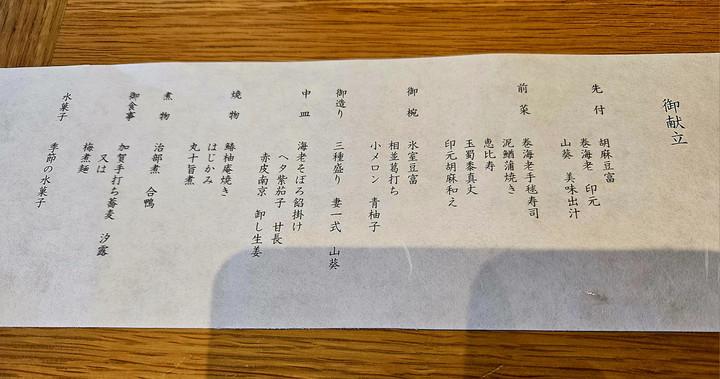 御献立
先付
胡麻豆富
巻海老 印元
山葵 美味出汁
前菜
巻海老手毬寿司
泥鰌蒲焼き
恵比寿
玉蜀黍真丈
印元胡麻和え
御椀
氷室豆富
相並葛打ち
小メロン 青柚子
御造り
三種盛り 妻一式 山葵
中皿
海老そぼろ餡掛け
ヘタ紫茄子 甘長
赤皮南京 卸し生姜
焼物
鰆柚庵焼き
はじかみ
丸十旨煮
煮物
治部煮 合鴨
御食事
加賀手打ち蕎麦 汐露
又は
梅煮麺
水菓子
季節の水菓子